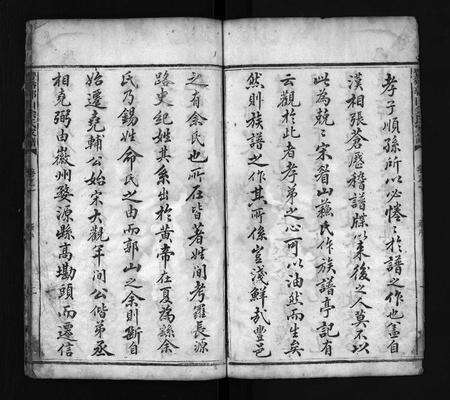 孝子順孫所以必惓〻於譜之作也嘗自
漢相張蒼歷稽譜牒以來後之人莫不以
此為兢〻宋眉山蘇氏作族譜亭記有
云觀於此者孝弟之心可以油然而生矣
然則族譜之作其所係豈淺鮮哉豐邑
之有余氏也所在皆著姓間考羅長源
路史紀姓其系出於黃帝在夏禹縣余
氏乃錫姓命氏之由而郭山之余則斷自
始遷堯輔公始宋大觀年間公偕弟丞
相堯弼由徽州婺源縣高勘頭而遷信